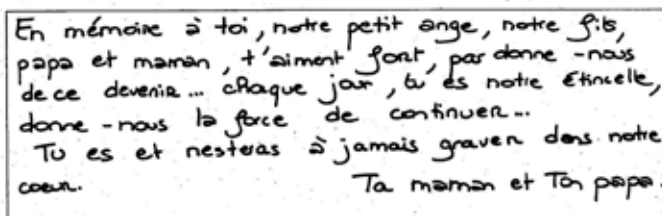 En mémoire à toi, notre petit ange, notre fils,
papa et maman, t'aiment font, par donne-nous
de ce devenir... chaque jour, tu es notre étincelle,
donne-nous la force de continuer...
Tu es et resteras à jamais graver dans notre
coeur. Ta maman et Ton papa.